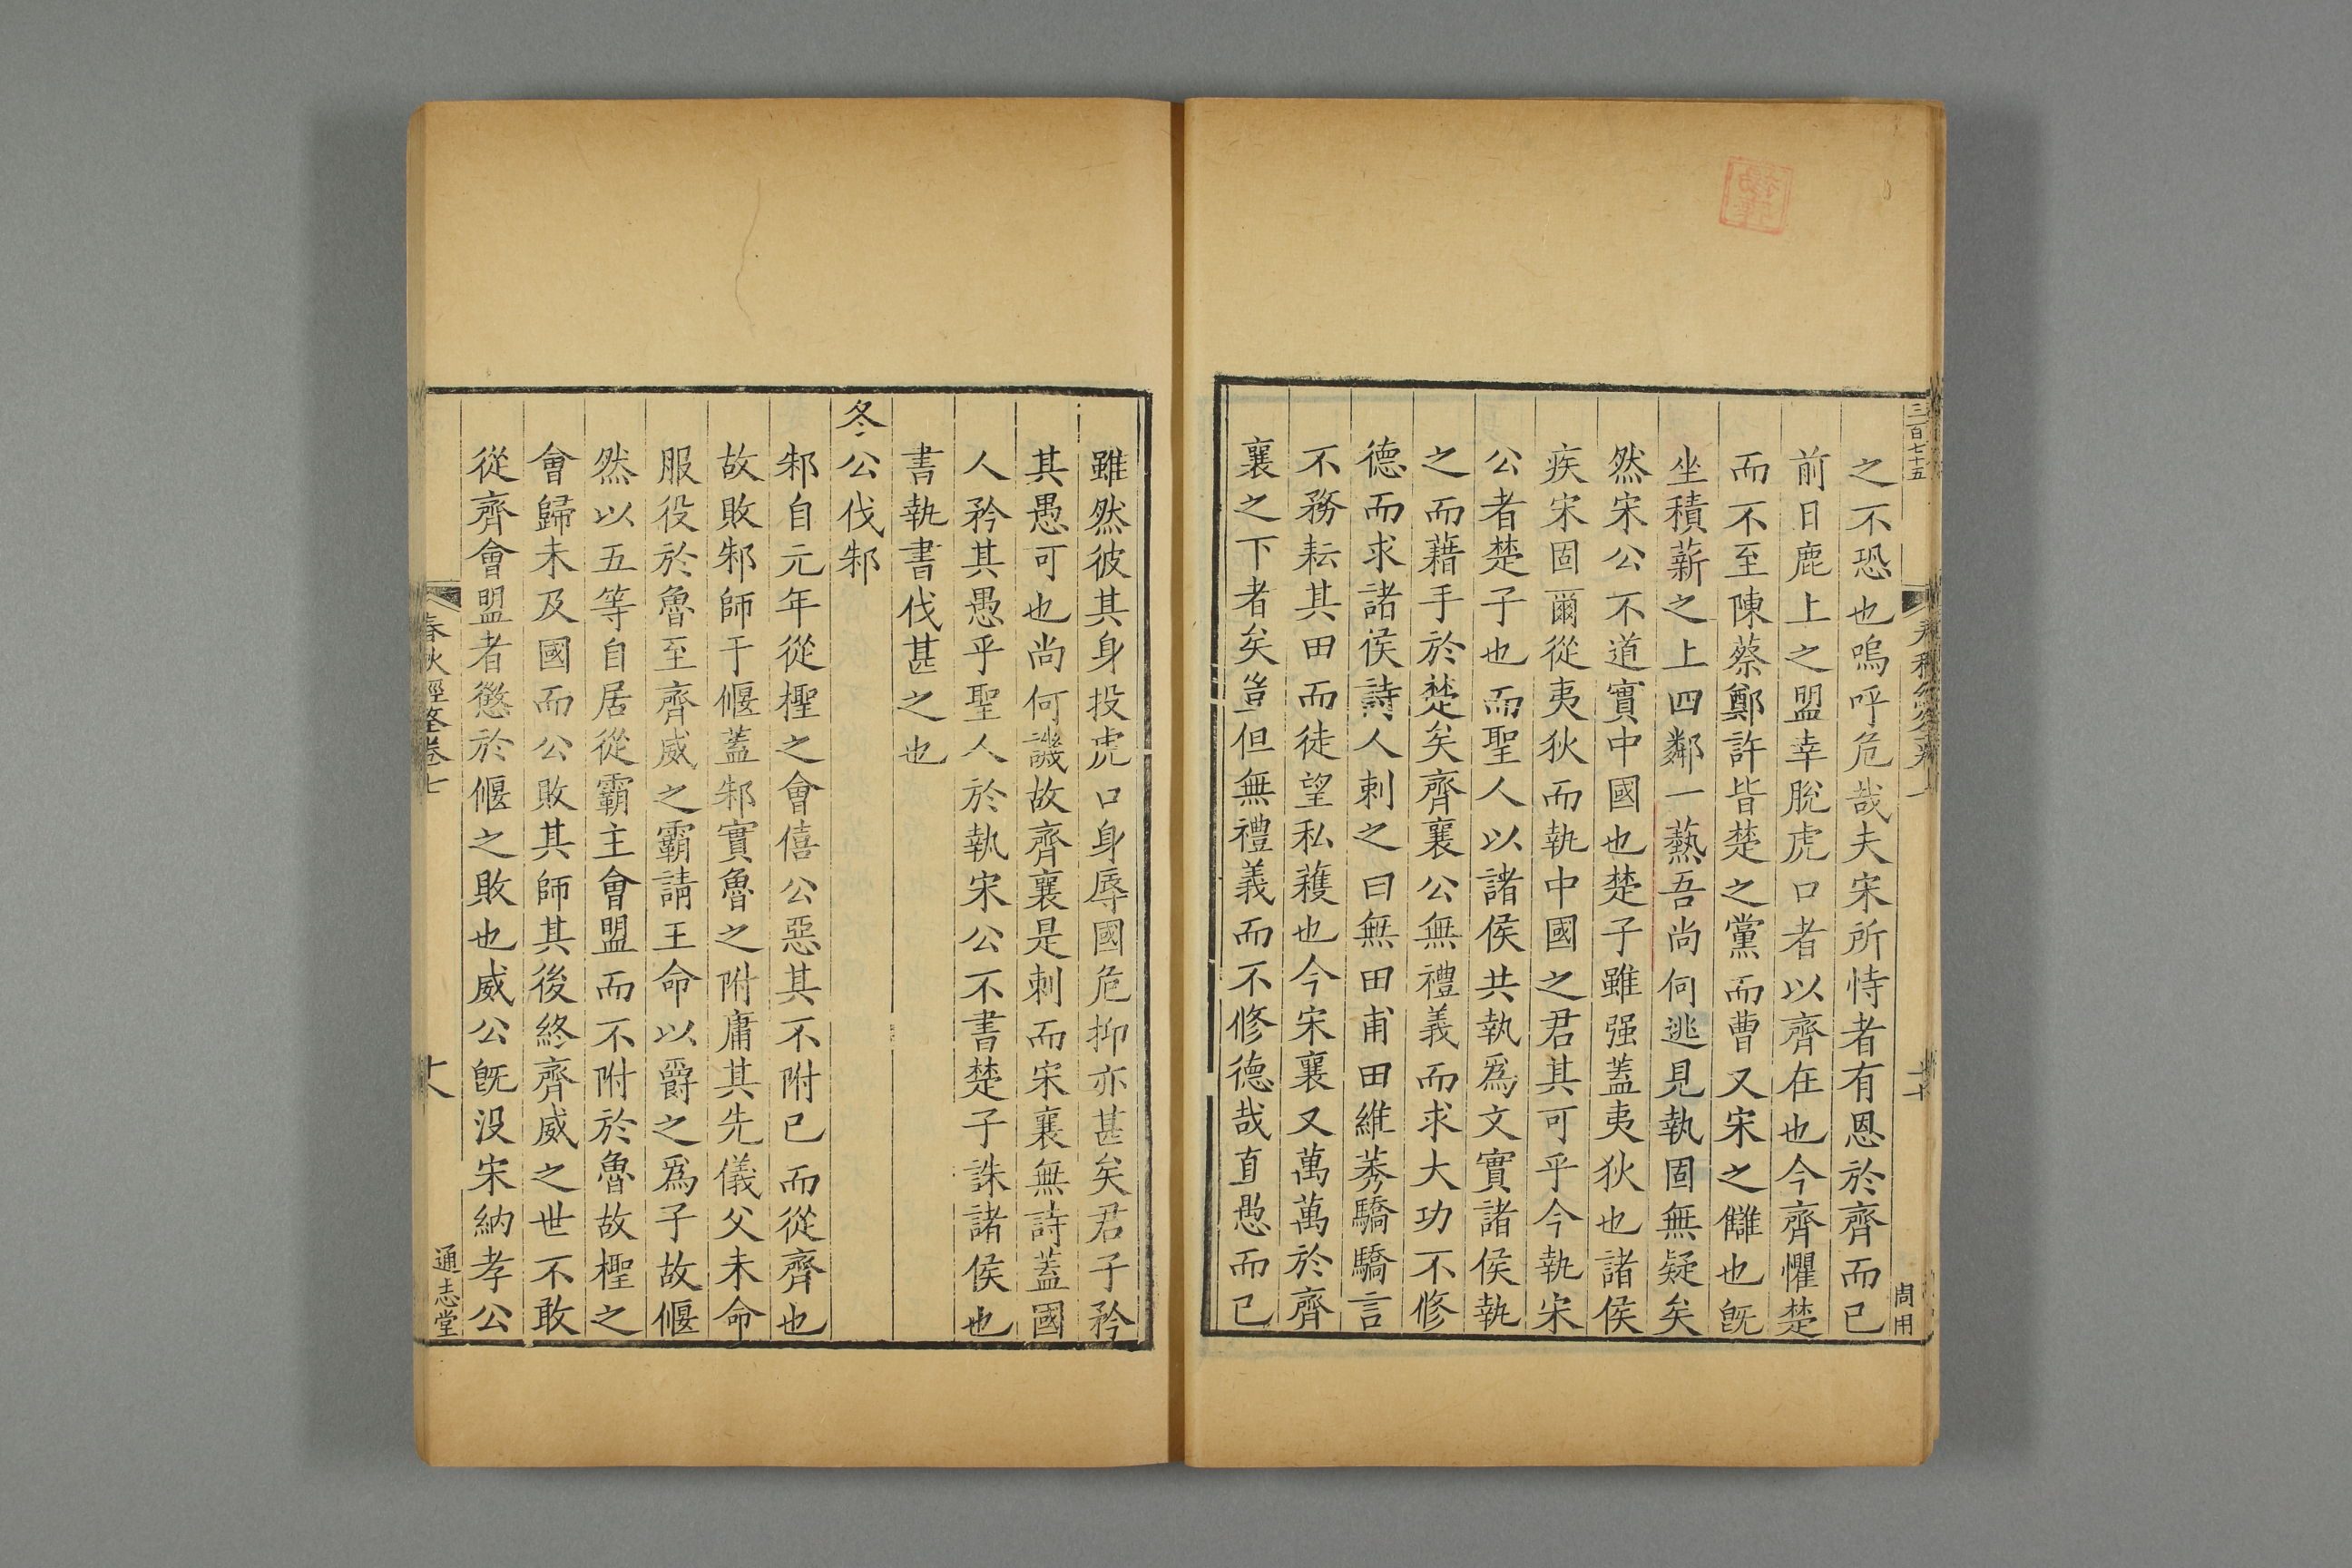 三百七十五
之不恐也嗚呼危哉夫宋所恃者有恩於齊而已
前日鹿上之盟幸脫虎口者以齊在也今齊懼楚
而不至陳蔡鄭許皆楚之黨而曹又宋之讎也旣
坐積薪之上四鄰一爇吾尚何逃見執固無疑矣
然宋公不道實中國也楚子雖强蓋夷狄也諸侯
疾宋固爾從夷狄而執中國之君其可乎今執宋
公者楚子也而聖人以諸侯共執爲文實諸侯執
之而藉手於楚矣齊襄公無禮義而求大功不修
德而求諸侯詩人刺之曰無田甫田維莠驕驕言
不務耘其田而徒望私穫也今宋襄又萬萬於齊
襄之下者矣豈但無禮義而不修德哉直愚而已
雖然彼其身投虎口身辱國危抑亦甚矣君子矜
其愚可也尚何譏故齊襄是刺而宋襄無詩蓋國
人矜其愚乎聖人於執宋公不書楚子誅諸侯也
書執書伐甚之也
冬公伐邾
邾自元年從檉之會僖公惡其不附已而從齊也
故敗邾師于偃蓋邾實魯之附庸其先儀父未命
服役於魯至齊威之霸請王命以爵之爲子故偃
然以五等自居從霸主會盟而不附於魯故檉之
會歸未及國而公敗其師其後終齊威之世不敢
從齊會盟者懲於偃之敗也威公旣没宋納孝公
春秋經筌卷七
十八
通志堂